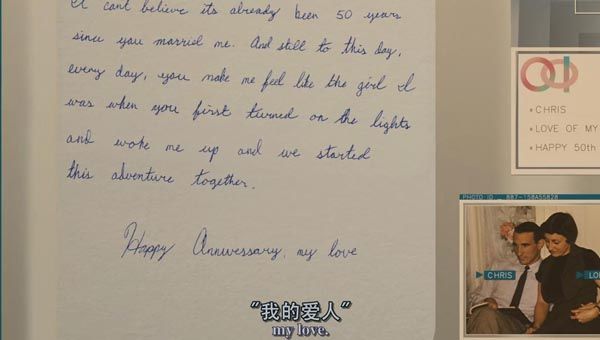 I cant believe its already been 50 years
since you married me. And still to this day,
every day, you make me feel like the girl I
was when you first turned on the lights
and woke me up and we started
this adventure together.
Happy Anniversary, my love
CHRIS
LOVE OF MY
HAPPY 50th
PHOTO ID._ 887-158A55820
CHRIS
LO
“我的爱人”
my love.